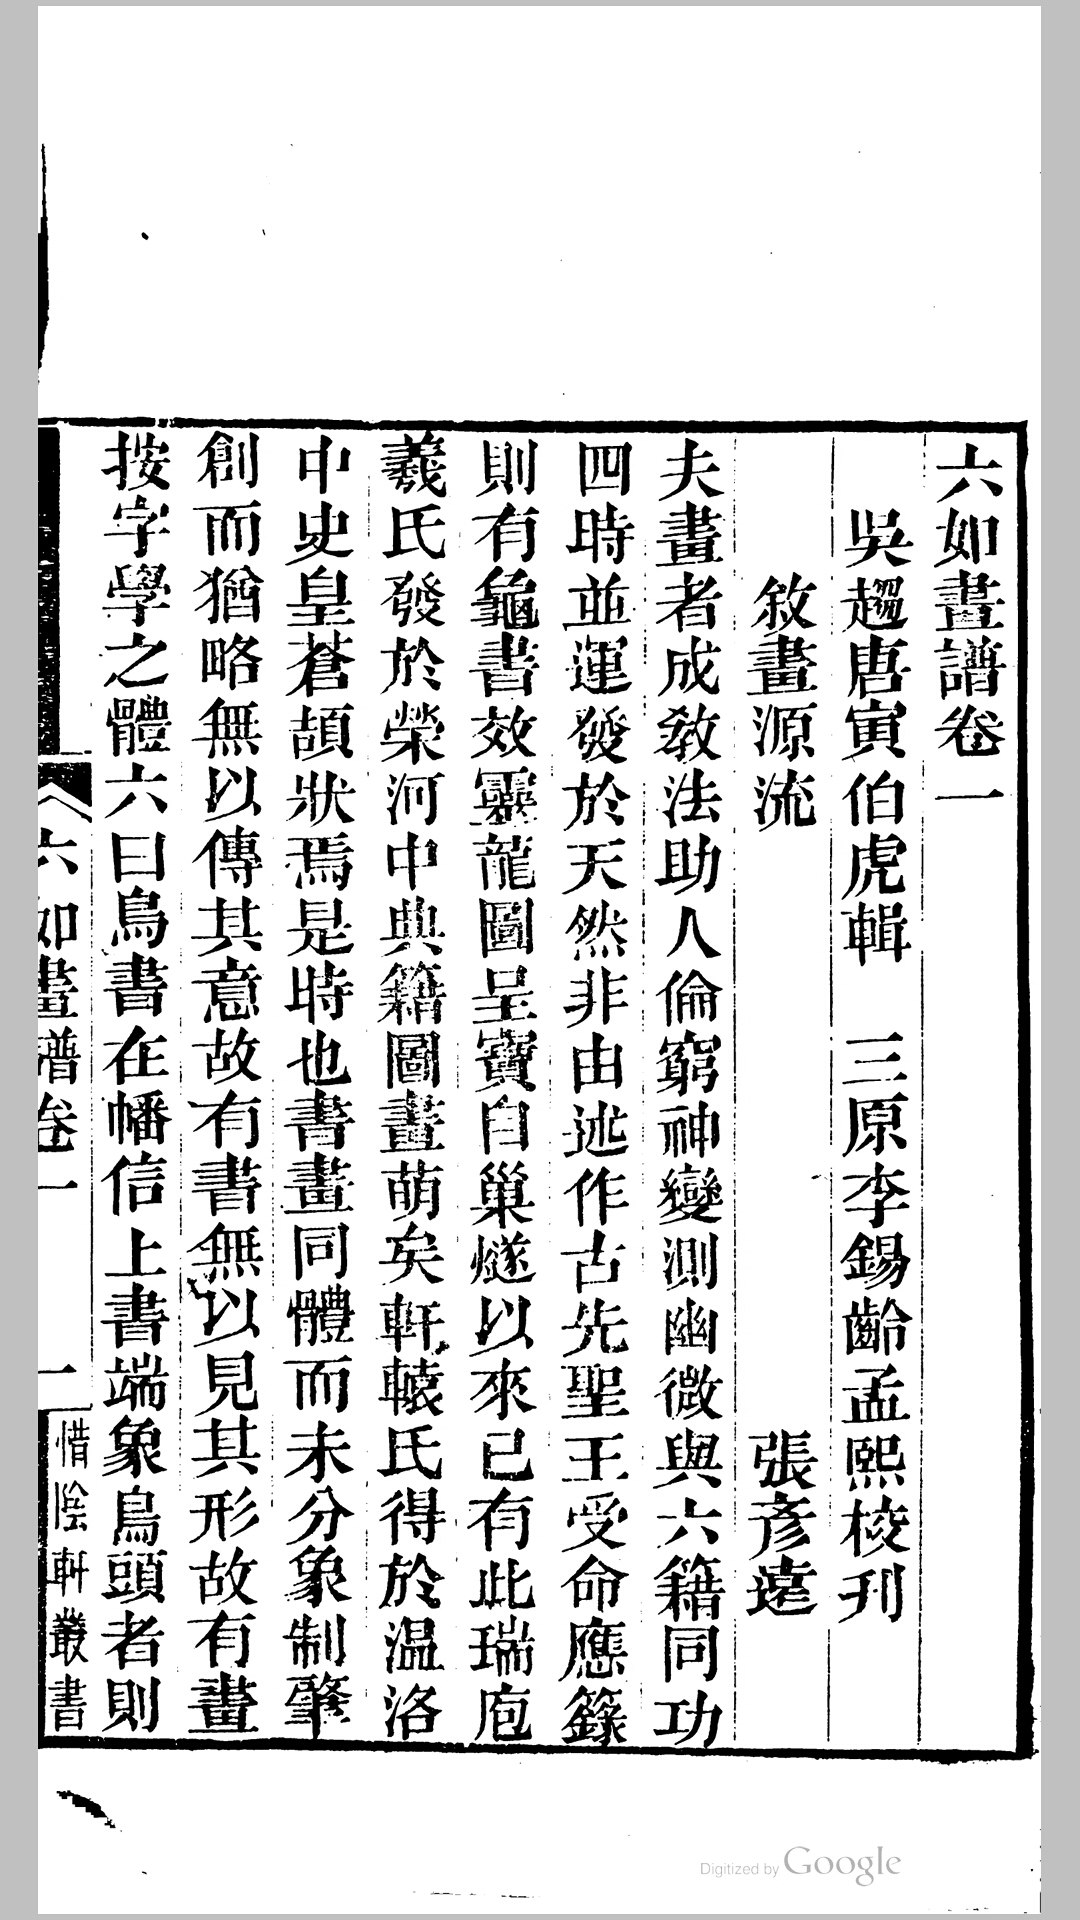 六如畫譜卷一
吳趨唐寅伯虎輯　三原李錫齡孟熙校刊
敘畫源流　張彥遠
夫畫者成敎法助人倫窮神變測幽微與六籍同功
四時並運發於天然非由述作古先聖王受命應籙
則有龜書效靈龍圖呈寶自巢燧以來已有此瑞庖
羲氏發於榮河中典籍圖畫萌矣軒轅氏得於温洛
中史皇蒼頡狀焉是時也書畫同體而未分象制肇
創而猶略無以傳其意故有書無以見其形故有畫
按字學之體六曰鳥書在幡信上書端象鳥頭者則
六如畫譜卷一　一　惜陰軒叢書
Digitized by Google